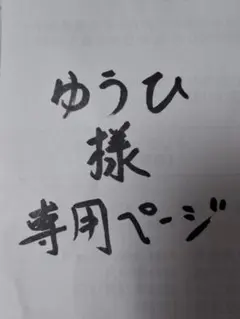 ゆうひ
様
専用ページ